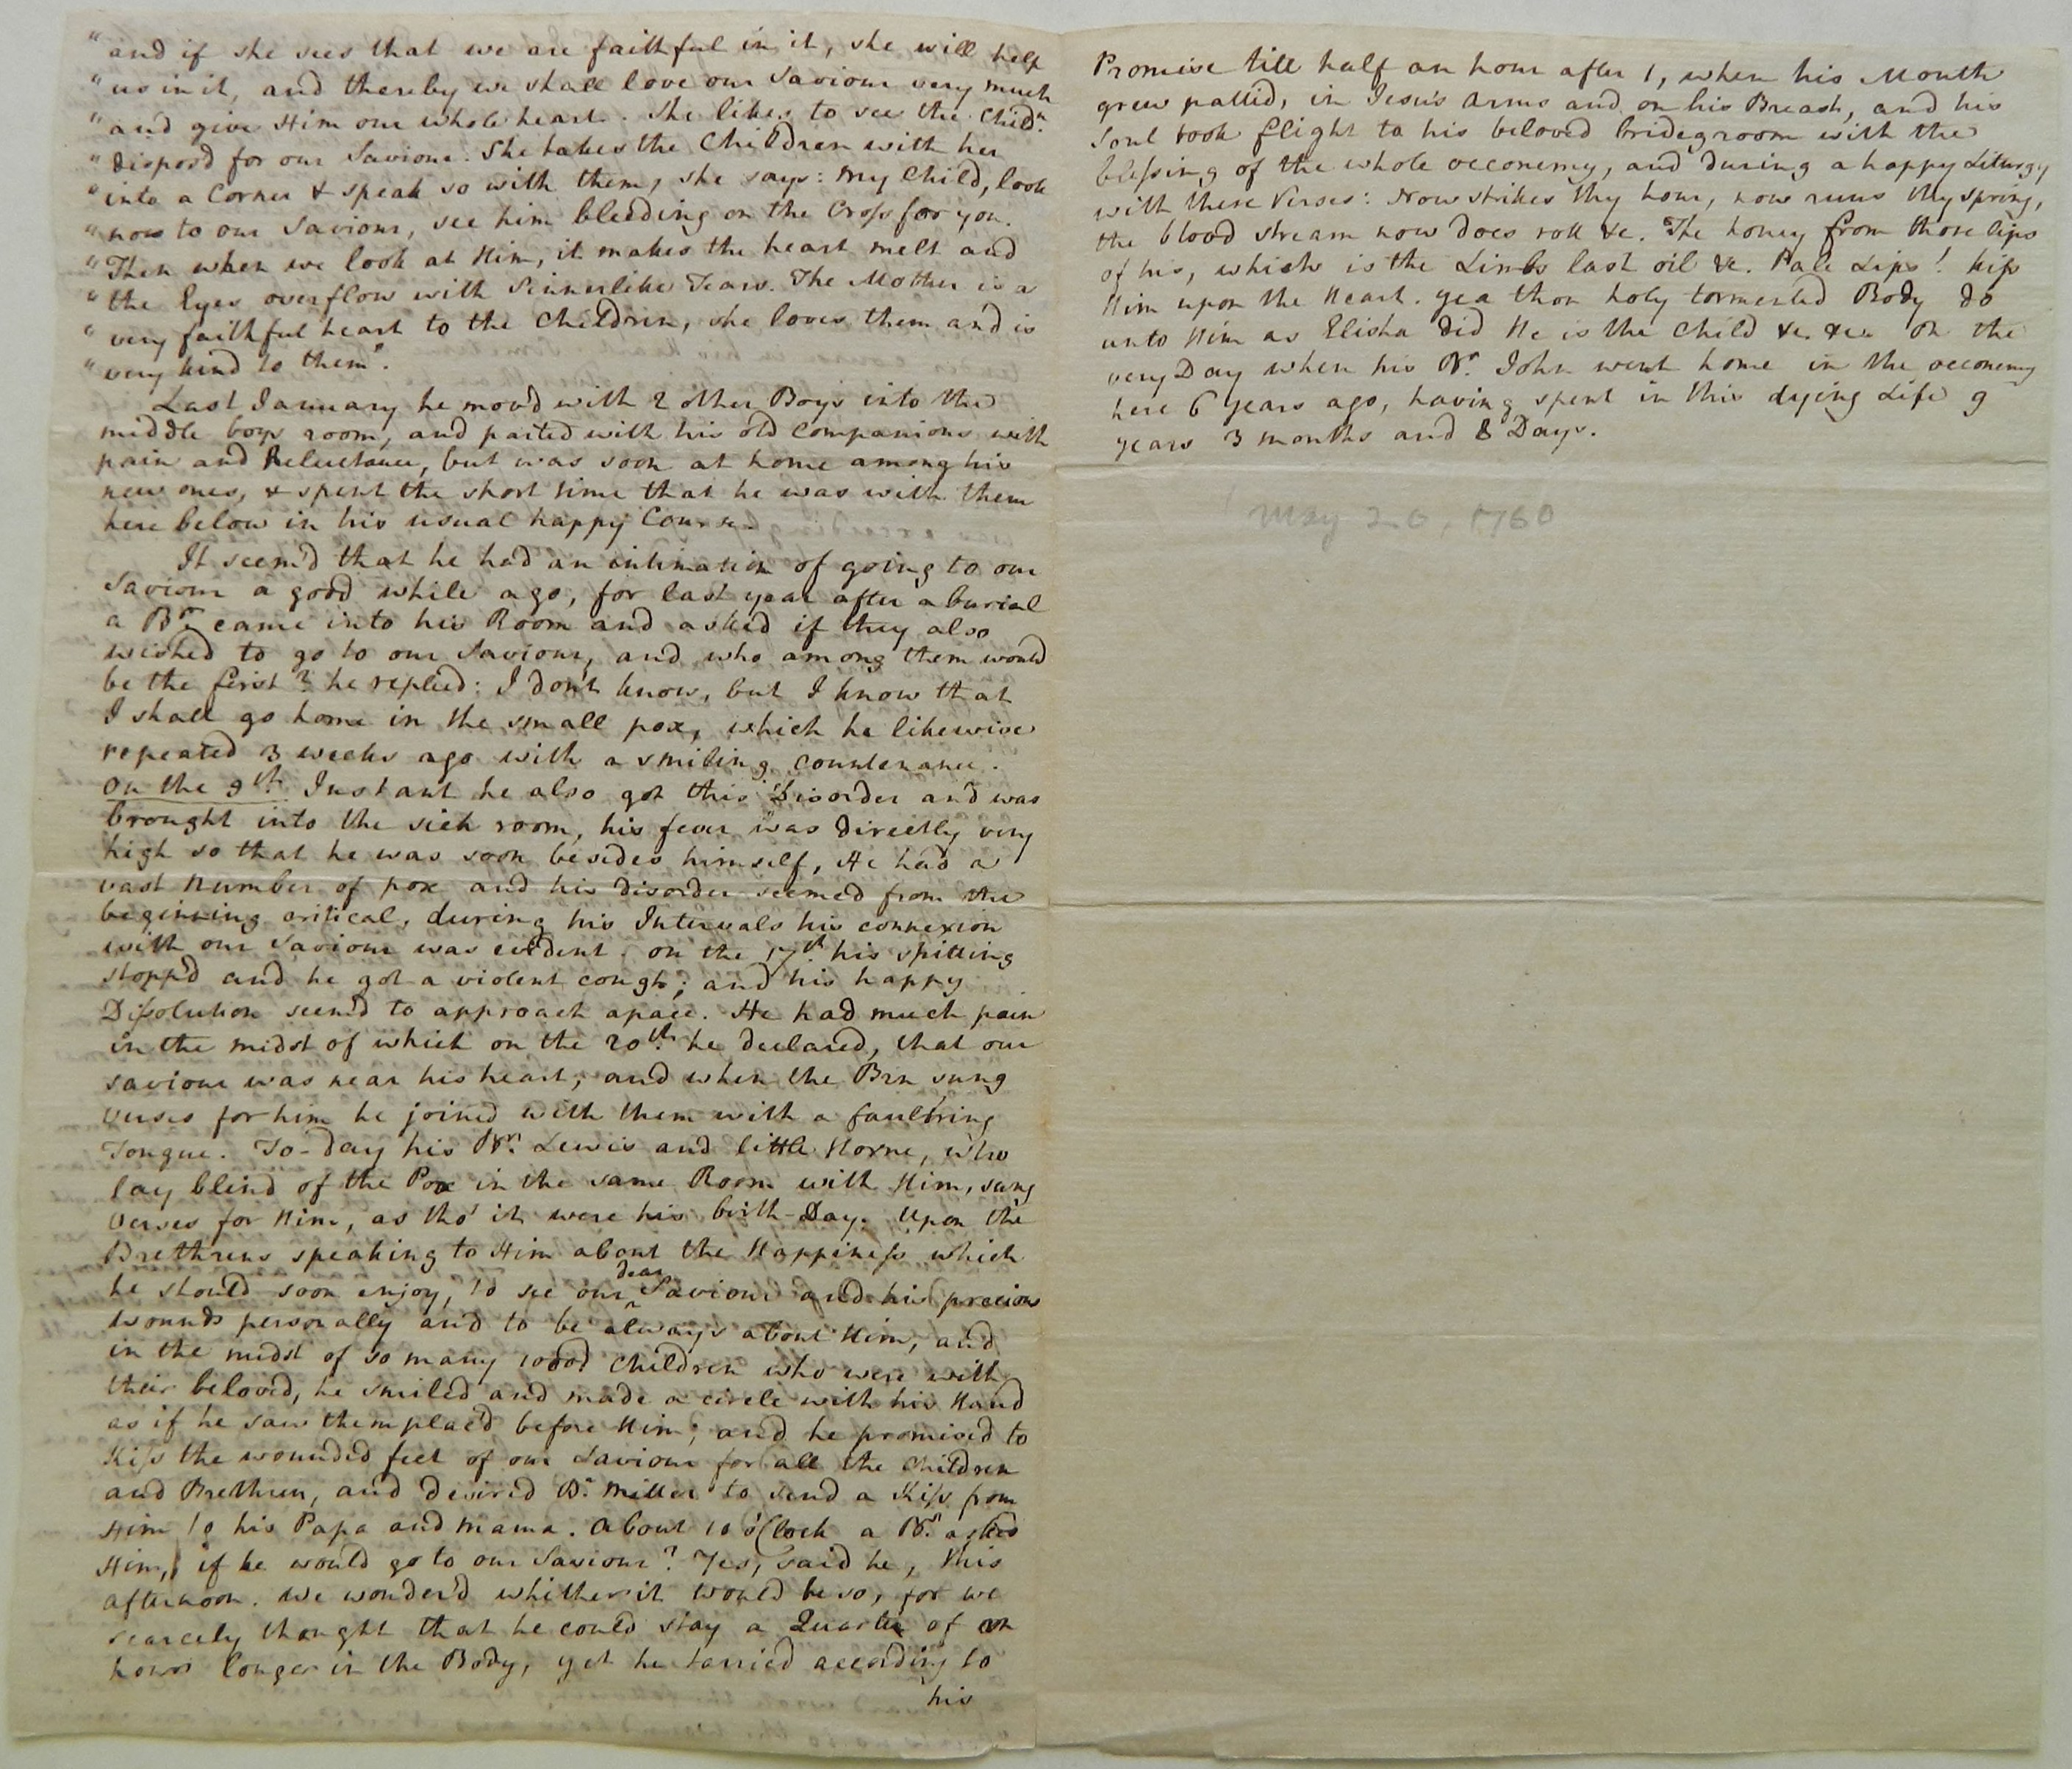 "and if she sees that we are faithful in it, she will help
"us in it, and thereby we shall love our Saviour very much
"and give Him our whole heart. She likes to see the Childn.
"dispos'd for our Saviour. She takes the Children with her
"into a Corner & speak so with them, she says: My Child, look
"now to our Saviour, see him bleeding on the Cross for you.
"Then when we look at Him, it makes the heart melt and
"the Eyes overflow with Sinnerlike Tears. The Mother is a
"very faithful heart to the Children, she loves them and is
"very kind to them".
Last January he mov'd with 2 other Boys into the
middle boys room, and parted with his old Companions with
pain and Reluctance, but was soon at home among his
new ones, & spent the short time that he was with them
here below in his usual happy Course.
It seem'd that he had an intimation of going to our
Saviour a good while ago, for last year after a burial
a Br. came into his Room and asked if they also
wished to go to our Saviour, and who among them would
be the first? he replied: I don't know, but I know that
I shall go home in the small pox, which he likewise
repeated 3 weeks ago with a smiling countenance.
On the 9th. Instant he also got this Disorder and was
brought into the sick room, his fever was directly very
high so that he was soon besides himself, He had a
vast Number of pox and his disorder seemed from the
begining critical, during his Intervals his connexion
with our Saviour was evident. On the 17th. his spitting
stopp'd and he got a violent cough; and his happy
Dissolution seem'd to approach apace. He had much pain
in the midst of which on the 20th. he declared, that our
Saviour was near his heart, and when the Brn sung
Verses for him he joined with them with a fault'ring
Tongue. To-day his Br. Lewis and little Horne, who
lay blind of the Pox in the same Room with Him, sung
Verses for Him, as tho' it were his birth-Day. Upon the
Brethrens speaking to Him about the Happiness which
he should soon enjoy, to see our dear Saviour and his precious
wounds personally and to be always about Him, and
in the midst of so many 1000d Children who were with
their beloved, he smiled and made a circle with his Hand
as if he saw them plac'd before Him; and he promised to
Kiss the wounded feet of our Saviour for all the Children
and Brethren, and desired Br. Miller to send a Kiss from
Him to his Papa and Mama. About 10 o'Clock a Br. asked
Him, if he would go to our Saviour? Yes, said he, this
afternoon. We wonder'd whither it would be so, for we
scarcely thought that he could stay a Quarter of an
hour longer in the Body, yet he tarried according to
his
Promise till half an hour after 1, when his Mouth
grew pallid, in Jesu's Arms and on his Breast, and his
Soul took flight to his beloved bridegroom with the
blessing of the whole oeconemy, and during a happy Liturgy
with these Verses: Now strikes thy hour, now runs thy spring,
the blood stream now does roll &c. The honey from those lips
of his, which is the Limbs last oil &c. Pale Lips! kiss
Him upon the Heart. Yea thou holy tormented Body do
unto Him as Elisha did He is the Child &c. &c. On the
very Day when his Br. John went home in the oeconemy
here 6 years ago, having spent in this dying Life 9
years 3 months and 8 Days.
May 20, 1760